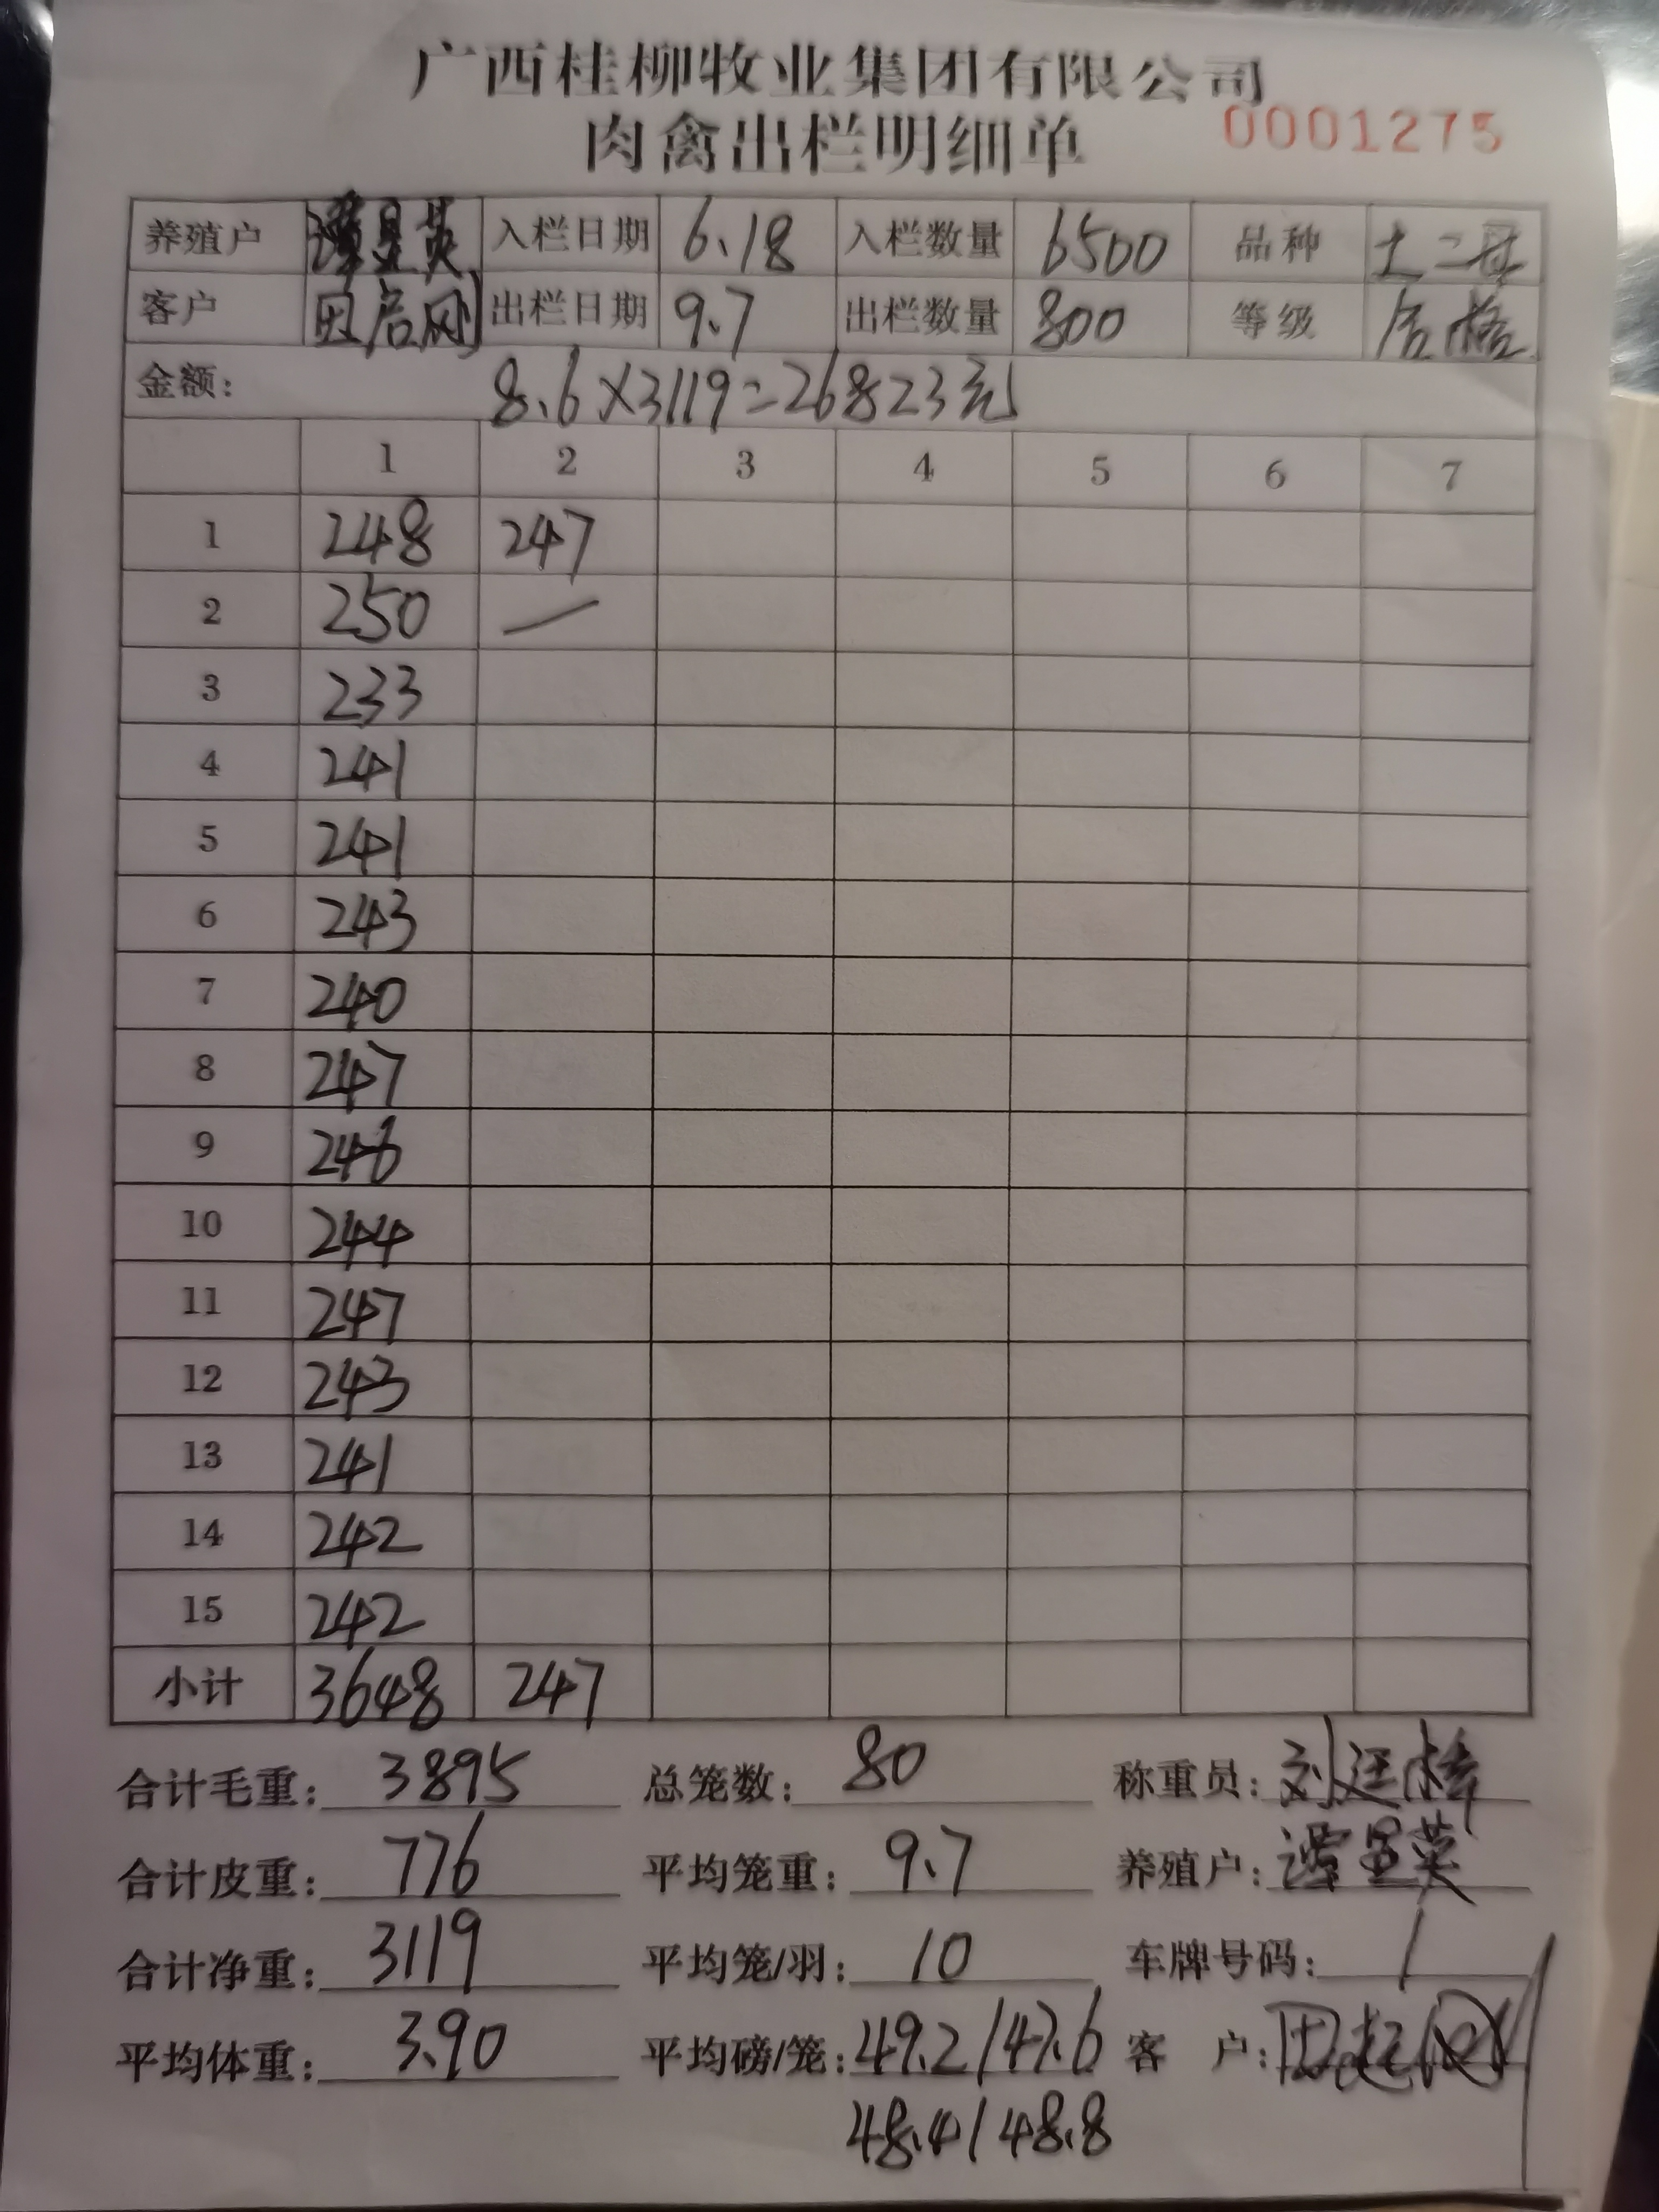 广西桂柳牧业集团有限公司
肉禽出栏明细单 0001275
养殖户 谭显英 入栏日期 6.18 入栏数量 6500 品种 土二母
客户 出栏日期 9.7 出栏数量 800 等级 合格
金额: 8.6×3119=26823元
1 2 3 4 5 6 7
1 248 247
2 250 —
3 233
4 241
5 241
6 243
7 240
8 247
9 246
10 244
11 247
12 243
13 241
14 242
15 242
小计 3648 247
合计毛重: 3895 总笼数: 80 称重员: 刘廷梓
合计皮重: 776 平均笼重: 9.7 养殖户: 谭显英
合计净重: 3119 平均笼/羽: 10 车牌号码: /
平均体重: 3.90 平均磅/笼: 49.2/47.6 客 户:
48.4/48.8